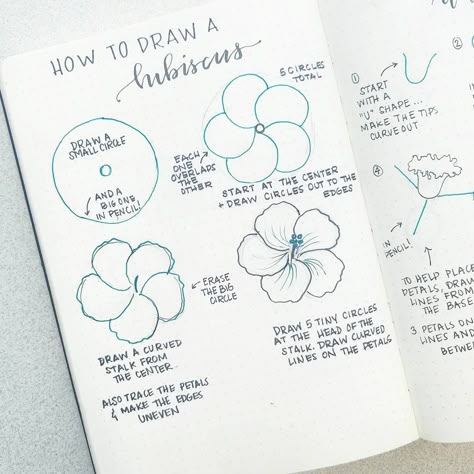 HOW TO DRAW A
hibiscus
DRAW A
SMALL CIRCLE
AND A
BIG ONE,
IN PENCIL!
5 CIRCLES
TOTAL
EACH
ONE
OVERLAPS
THE
OTHER
START AT THE CENTER
+ DRAW CIRCLES OUT TO THE
EDGES
ERASE
THE BIG
CIRCLE
DRAW A CURVED
STALK FROM
THE CENTER.
ALSO TRACE THE PETALS
& MAKE THE EDGES
UNEVEN
DRAW 5 TINY CIRCLES
AT THE HEAD OF THE
STALK. DRAW CURVED
LINES ON THE PETALS
1
START
WITH A
"U" SHAPE...
MAKE THE TIPS
CURVE OUT
2
4
IN
PENCIL!
TO HELP PLACE
PETALS, DRAW
LINES FROM
THE BASE
3 PETALS ON
LINES AND
BETWE